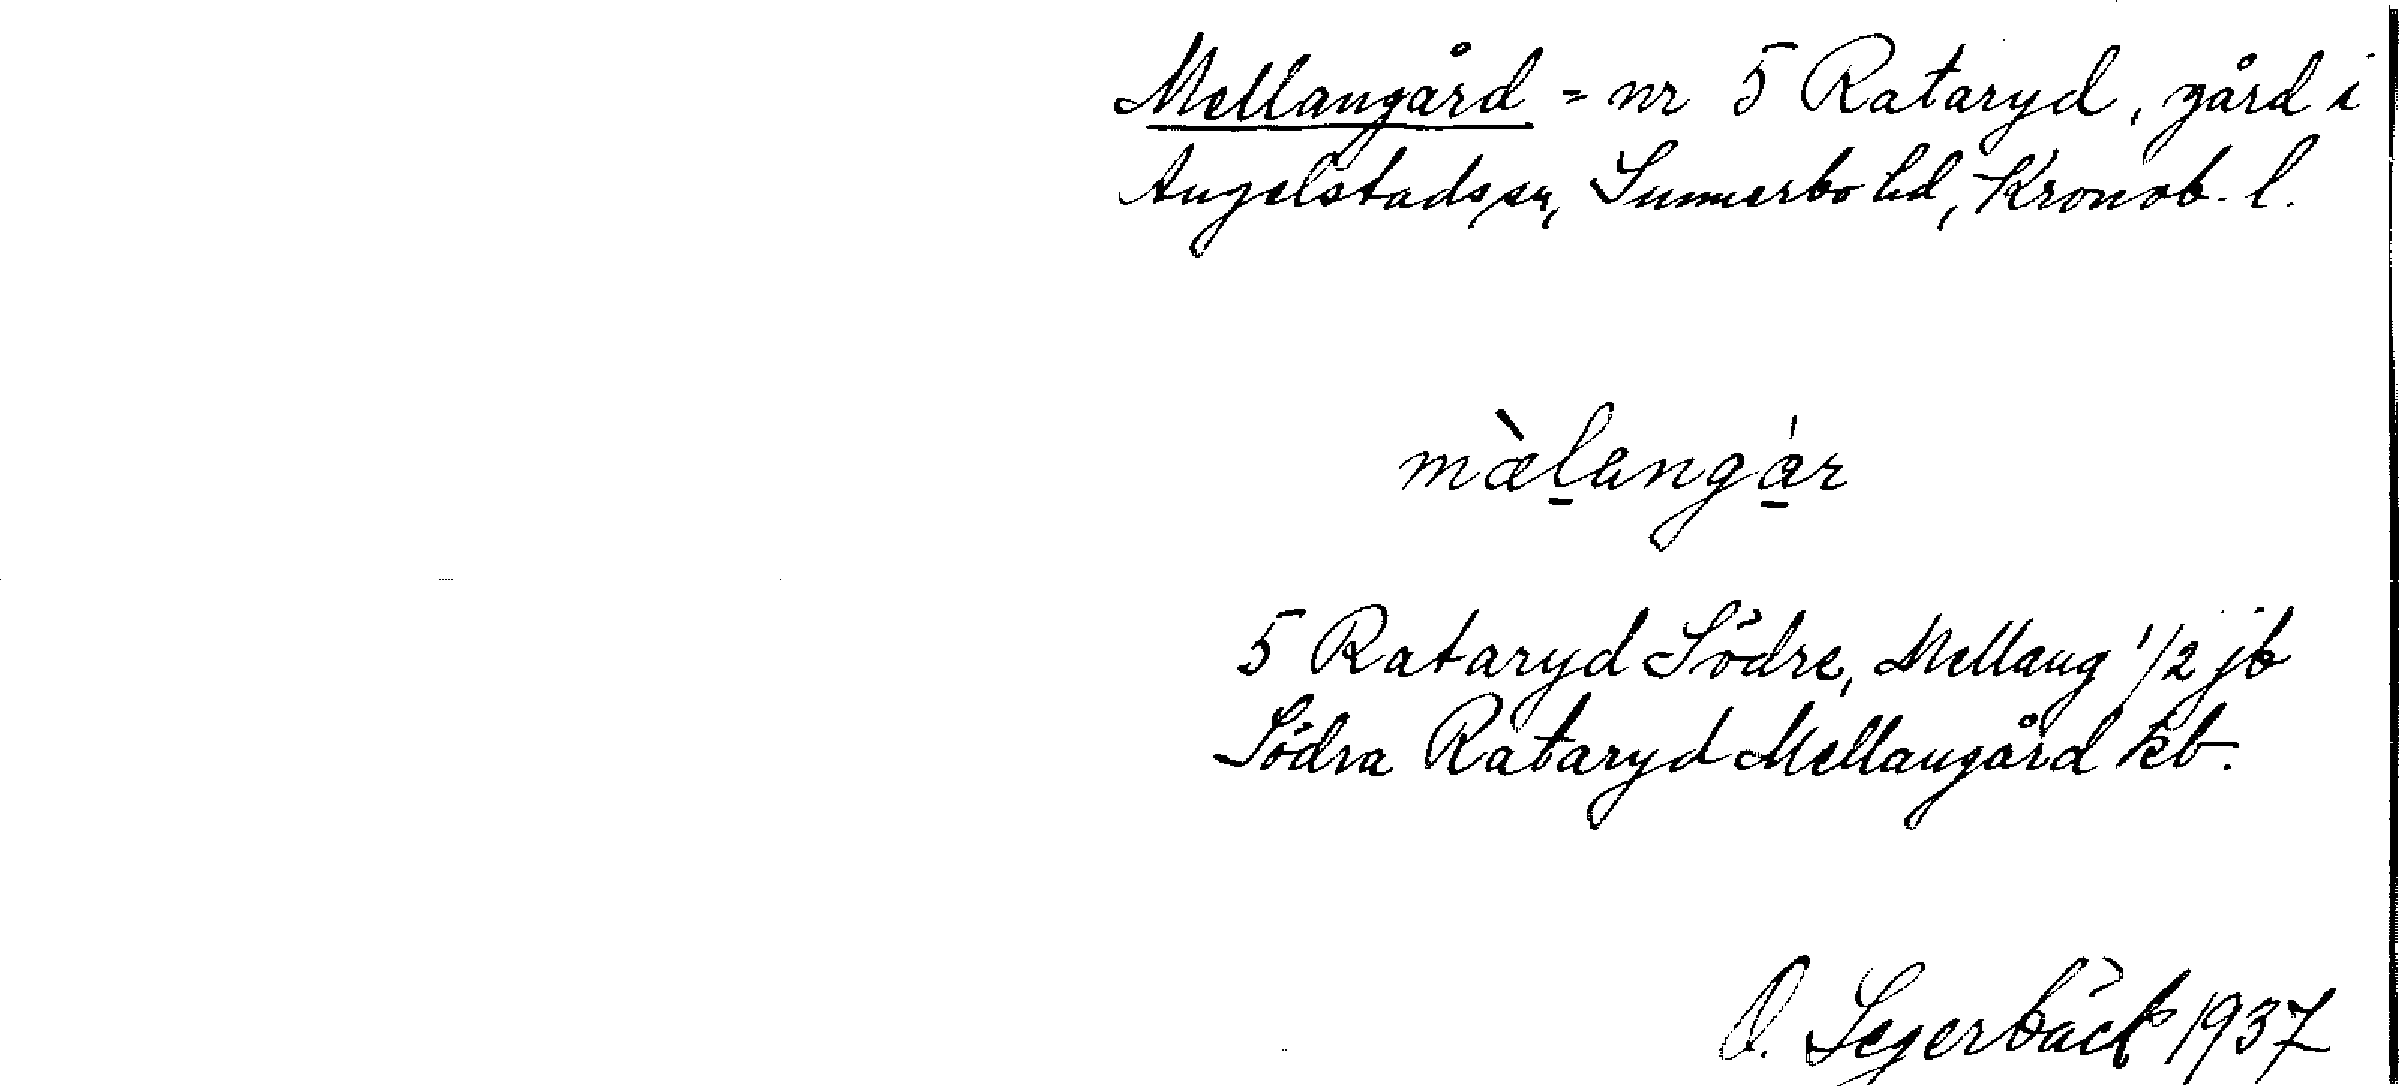 Mellangård = nr 5 Rataryd, gård i
Angelstads sn, Sunnerbo hd, Kronob. l.
mæ̀l̠angá̠r
5 Rataryd Södre, Mellang 1/2 jb
Södra Rataryd Mellangård kb.
O. Segerbäck 1937